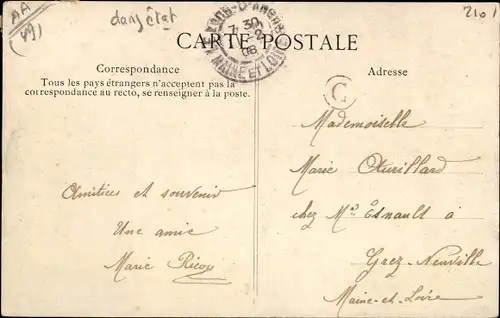 AA
(49)
dans état
210
7 30
2
08
MAINE ET LOIRE
CARTE POSTALE
Correspondance
Tous les pays étrangers n'acceptent pas la
correspondance au recto, se renseigner à la poste.
Adresse
C
Amitiées et souvenir
Une amie
Marie
Mademoiselle
Marie
chez Mr Esnault à
Grez Neuville
Maine-et-Loire